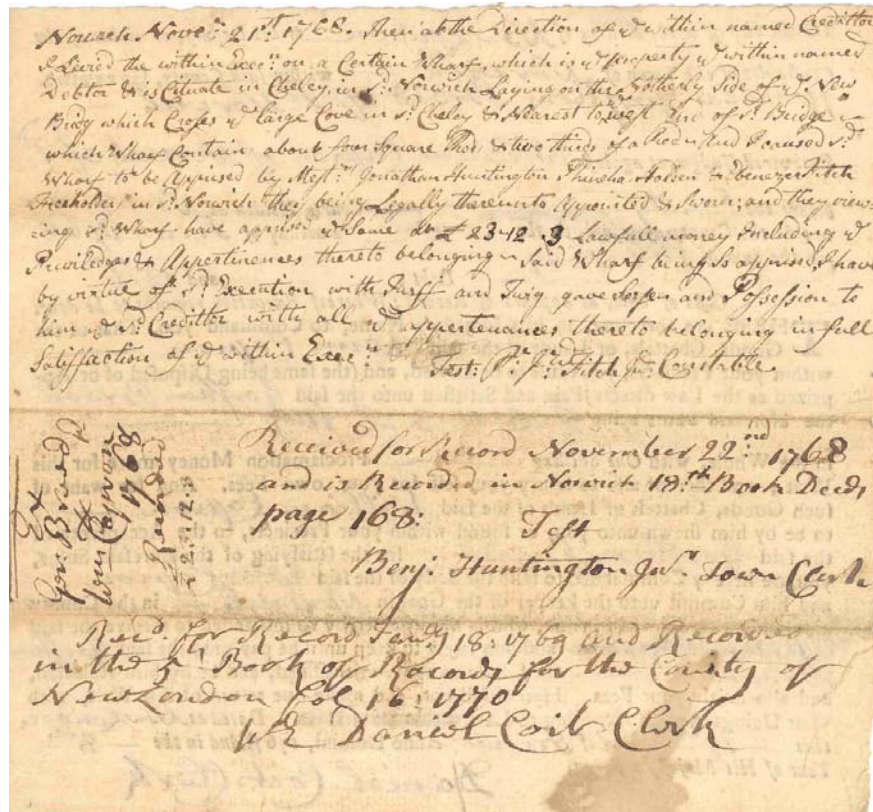 Norwich Novr. 21st. 1768. then at the Direction of ye within named Creditor
I Levied the within Execn. on a Certain Wharf, which is ye property ye within named
Debtor & is Cituate in Chelcy, in sd. Norwich Laying on the Notherly Side of ye New
Bridg which Croses ye large Cove in sd. Chelcy & Nearest to ye west End of sd. Bridge
which Wharf Contain about four Square Rods & two thirds of a Rod And I caused sd.
Wharf to be Apprised by Messrs. Jonathan Huntington Holden & Ebenezer Fitch
Freeholders in sd. Norwich they being Legally thereunto Appointed & Sworn; and they view-
ing sd. Wharf have apprised ye Same at £23-12.3 Lawfull money Including ye
Priviledges & Appertinences thereto belonging Said Wharf being So apprised I have
by virtue of sd. Execution with Turff and Twig gave and Possession to
him ye sd. Creditor with all ye appertenances thereto belonging in full
Satisfaction of ye within Execn.
Test. Pr. Fitch Junr. Constable
Ex
Gen Breed
vs
Wm Capron
1768
Recorded
£ 23.12.3
Received for Record November 22nd. 1768
and is Recorded in Norwich 18th. Book Deeds
page 168:
Test
Benj. Huntington Junr. Town Clerk
Recd. for Record Jany 18. 1769 and Recorded
in the 5 Book of Records for the County of
New London Fol 16. 1770
Daniel Coit Clerk